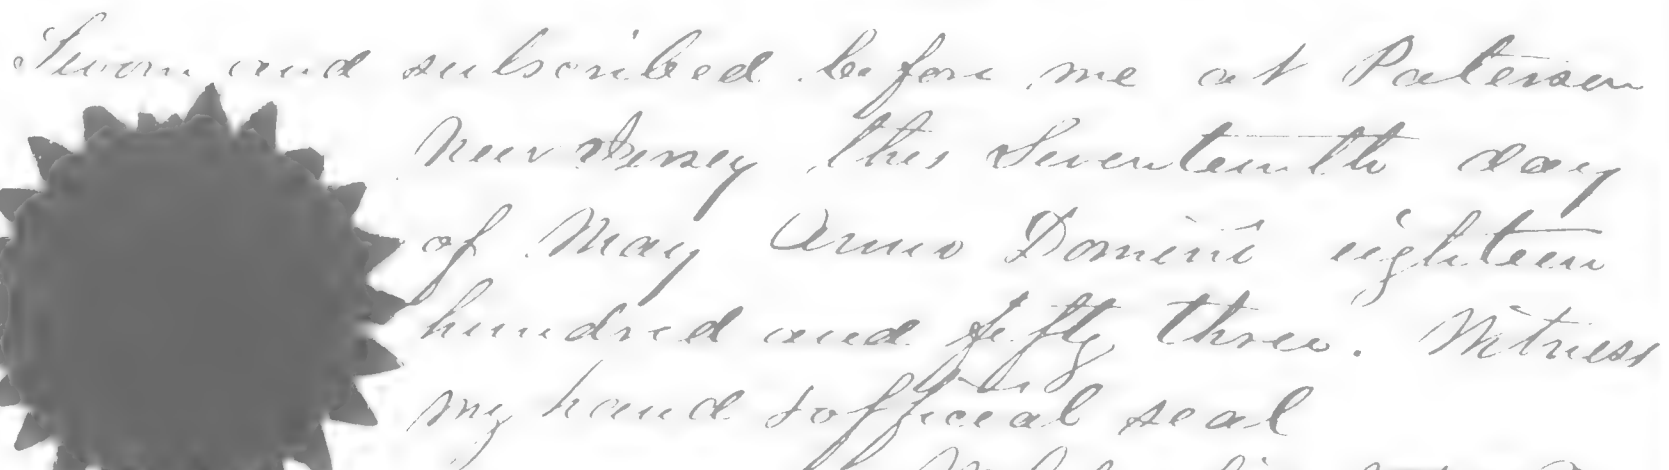 Sworn and subscribed before me at Paterson
New Jersey this Seventeenth day
of May Anno Domini eighteen
hundred and fifty three. Witness
my hand & official seal